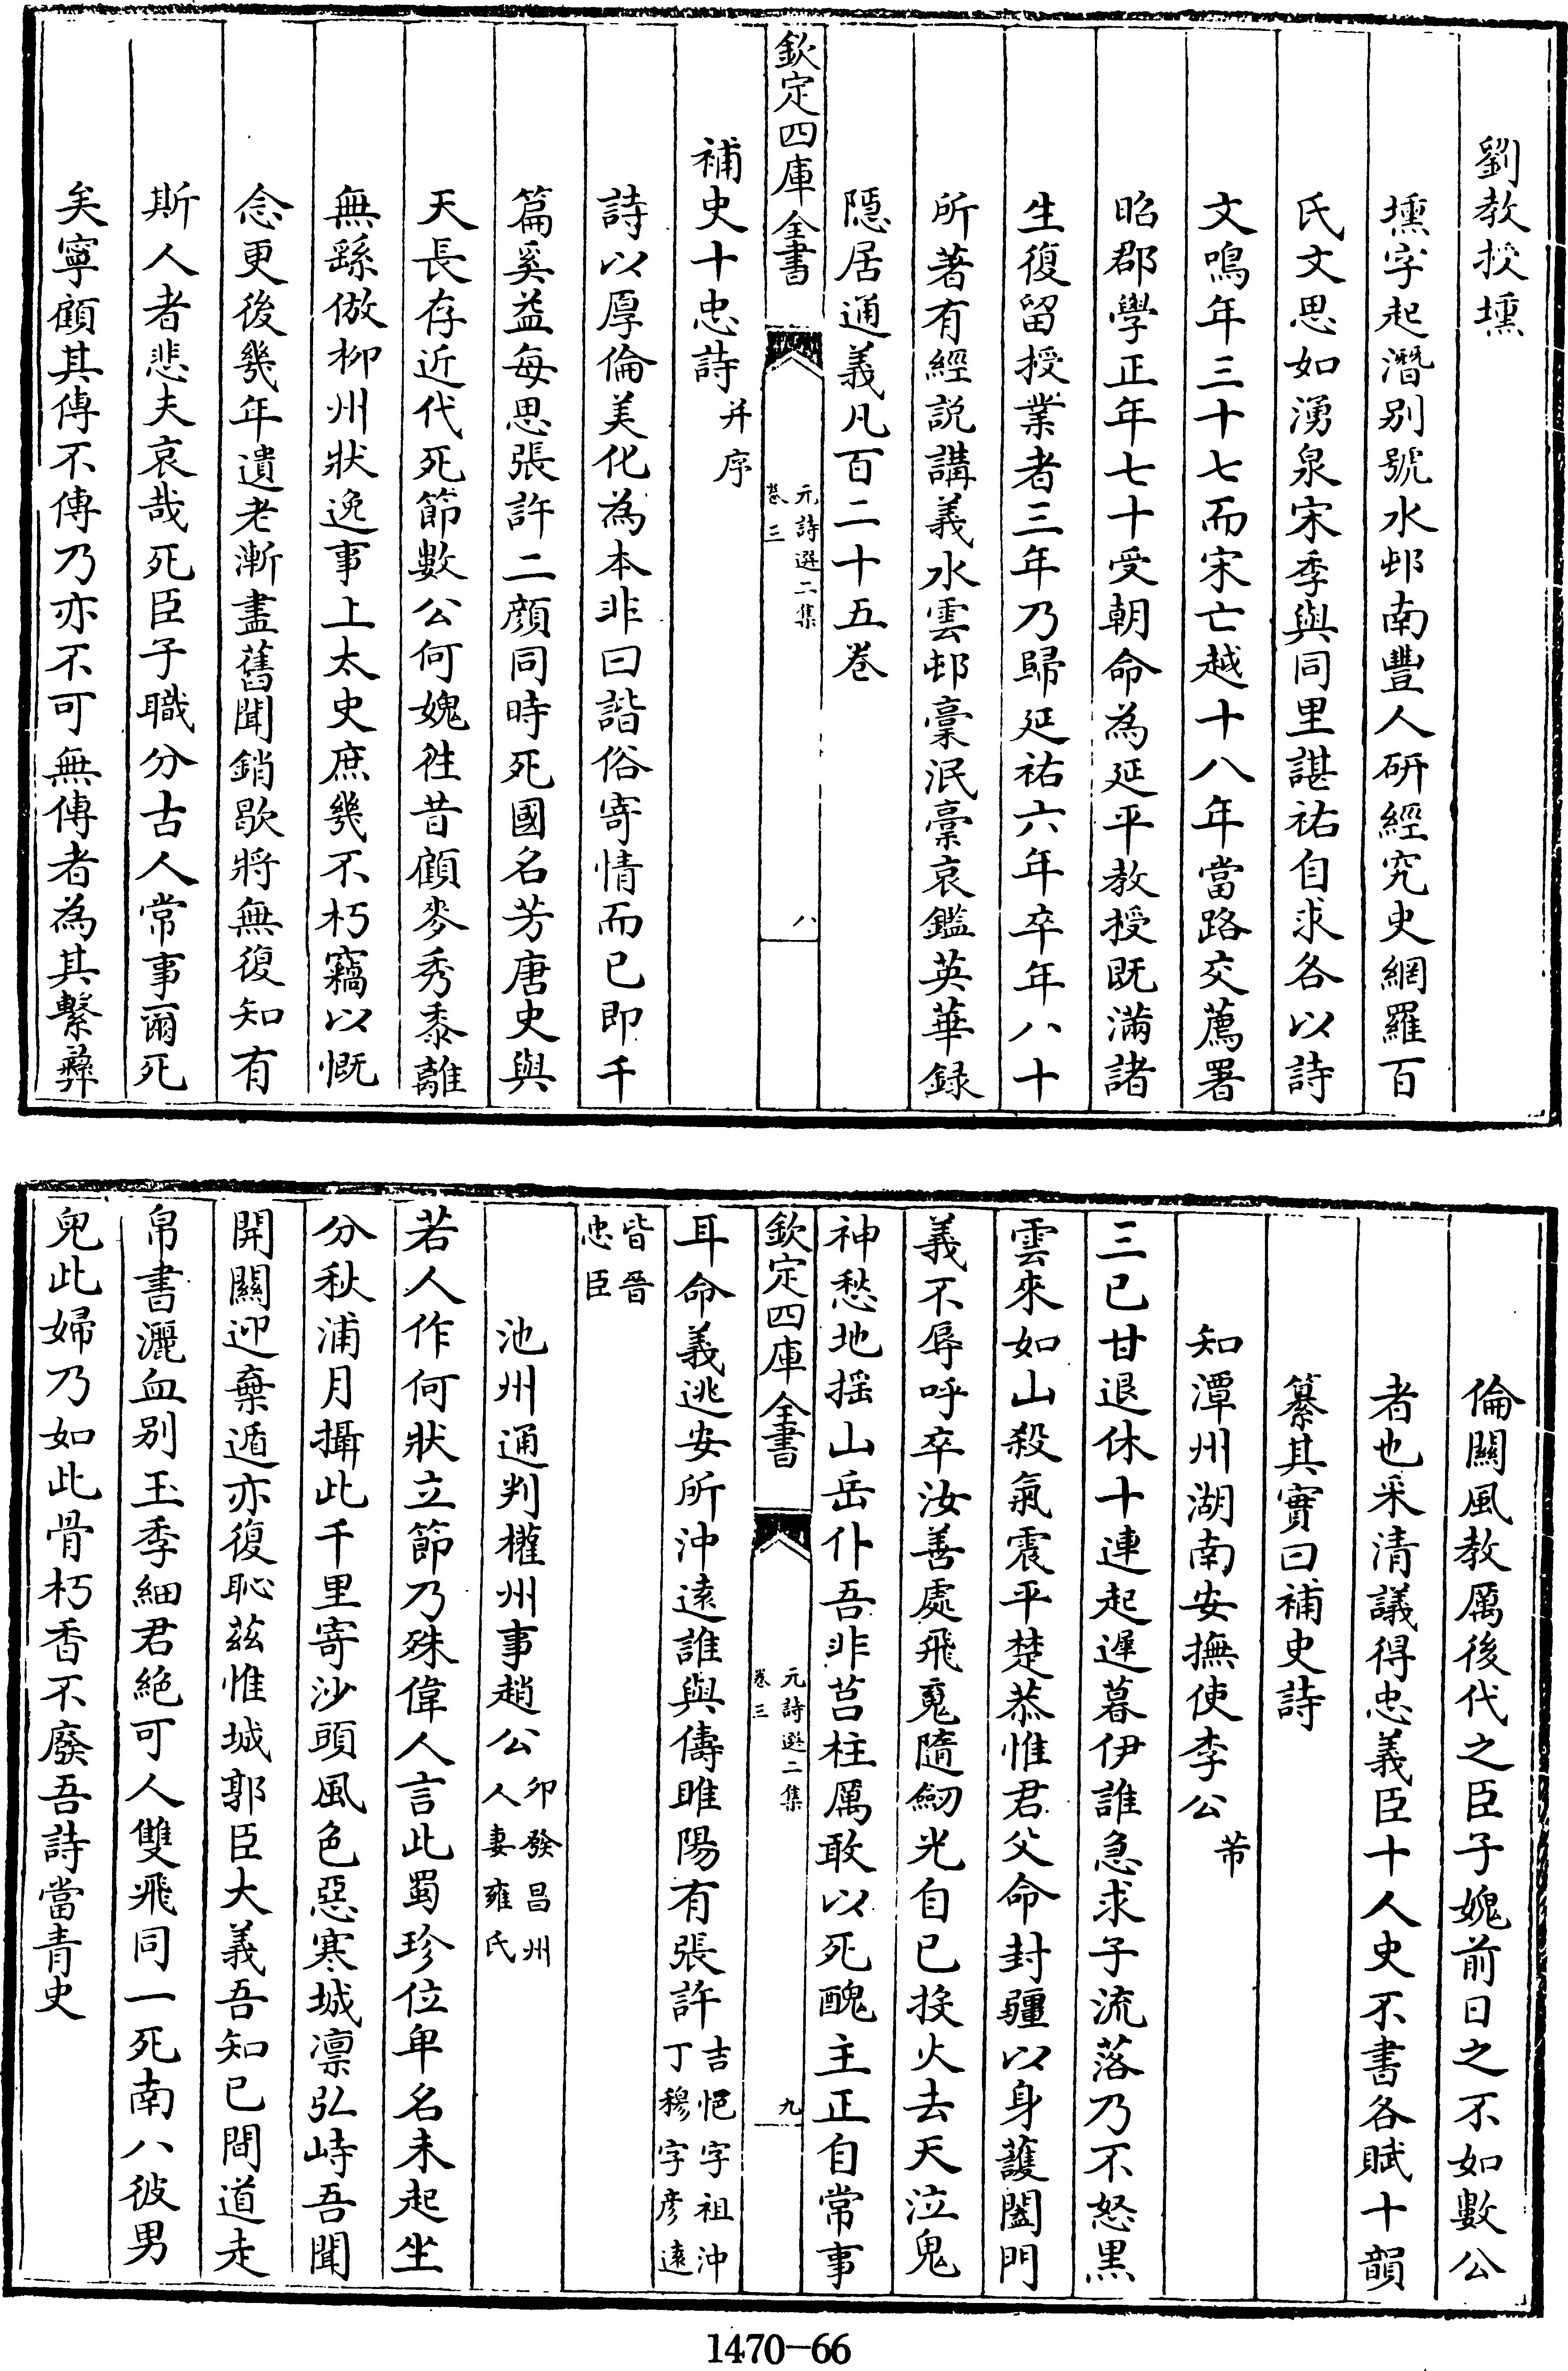 劉教授壎
壎字起潛别號水邨南豐人研經究史網羅百
氏文思如湧泉宋季與同里諶祐自求各以詩
文鳴年三十七而宋亡越十八年當路交薦署
昭郡學正年七十受朝命為延平教授既滿諸
生復留授業者三年乃歸延祐六年卒年八十
所著有經説講義水雲邨稾泯稾哀鑑英華録
隱居通義凡百二十五卷
欽定四庫全書
元詩選二集
卷三
八
補史十忠詩并序
詩以厚倫美化為本非曰諧俗寄情而已即千
篇奚益每思張許二顔同時死國名芳唐史與
天長存近代死節數公何媿徃昔顧麥秀黍離
無繇倣柳州狀逸事上太史庶幾不朽竊以慨
念更後幾年遺老漸盡舊聞銷歇將無復知有
斯人者悲夫哀哉死臣子職分古人常事爾死
矣寧顧其傳不傳乃亦不可無傳者為其繫彛
倫關風教厲後代之臣子媿前日之不如數公
者也采清議得忠義臣十人史不書各賦十韻
纂其實曰補史詩
知潭州湖南安撫使李公芾
三已甘退休十連起遲暮伊誰急求子流落乃不怒黑
雲來如山殺氣震平楚恭惟君父命封疆以身䕶闔門
義不辱呼卒汝善處飛䰟隨劒光自已投火去天泣鬼
神愁地摇山岳仆吾非莒柱厲敢以死醜主正自常事
欽定四庫全書
元詩選二集
卷三
九
耳命義逃安所沖逺誰與儔睢陽有張許吉悒字祖沖
丁穆字彦逺
皆晉
忠臣
池州通判權州事趙公卯發昌州
人妻雍氏
若人作何狀立節乃殊偉人言此蜀珍位卑名未起坐
分秋浦月攝此千里寄沙頭風色惡寒城凛弘峙吾聞
開關迎棄遁亦復恥兹惟城郭臣大義吾知已間道走
帛書灑血别玉季細君絶可人雙飛同一死南八彼男
兒此婦乃如此骨朽香不廢吾詩當青史
1470-66